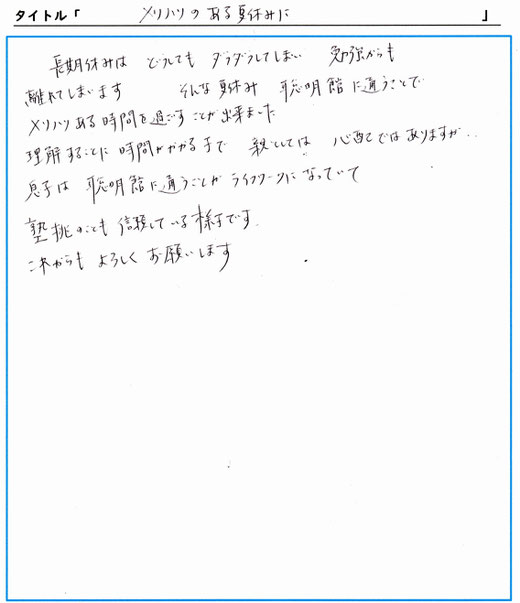 タイトル「 メリハリのある夏休みに 」
長期休みは どうしても ダラダラしてしまい 勉強からも
離れてしまいます そんな夏休み 聡明館に通うことで
メリハリある時間を過ごすことが出来ました
理解することに時間がかかる子で 親としては 心配ではありますが..
息子は 聡明館に通うことが ライフワークになっていて
塾 のことも 信頼している様子です.
これからも よろしく お願いします